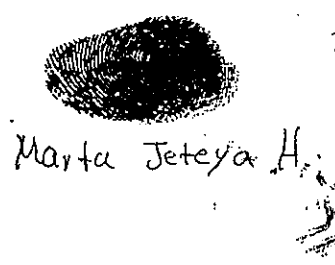 Marta Jeteya H.